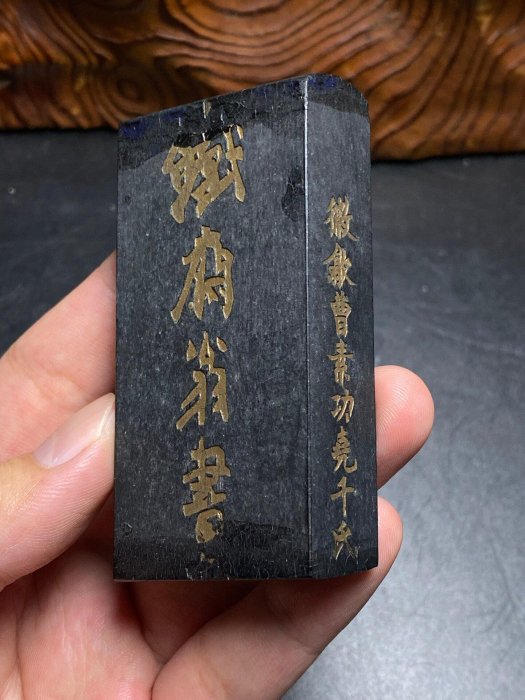 鐵齋翁書
徽歙曹素功堯千氏